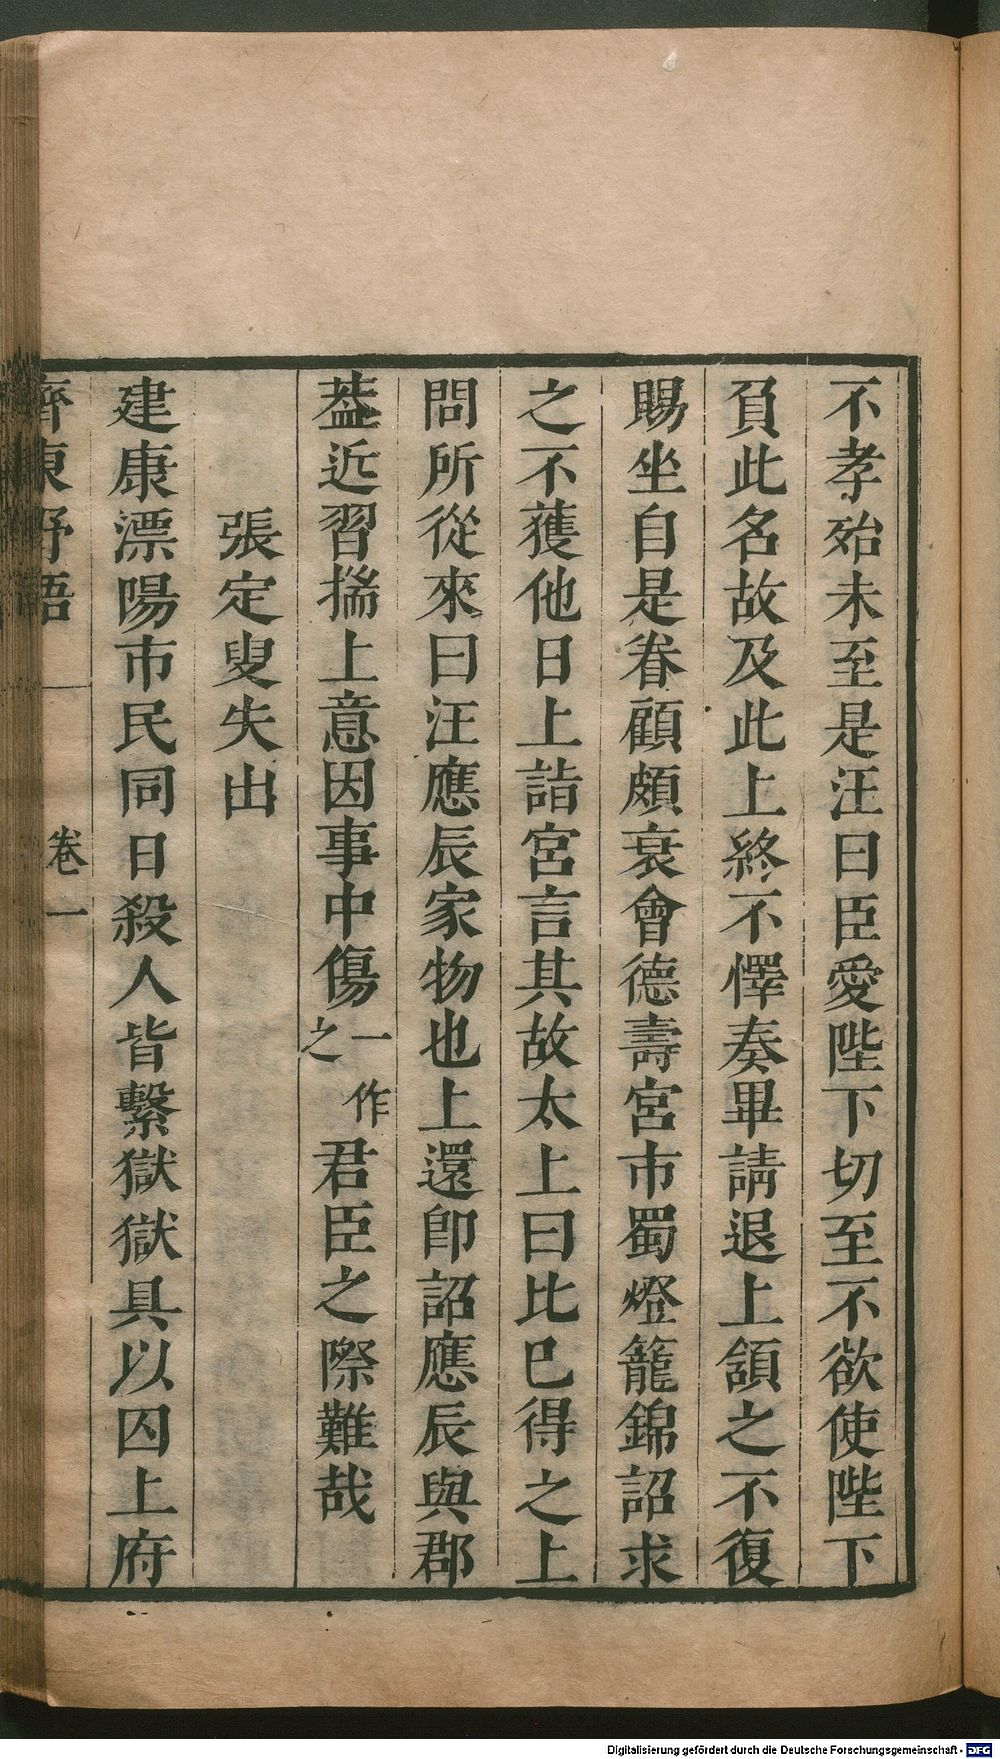 不孝殆未至是汪曰臣愛陛下切至不欲使陛下
負此名故及此上終不懌奏畢請退上頷之不復
賜坐自是眷顧頗衰會德壽宮市蜀燈籠錦詔求
之不獲他日上詣宮言其故太上曰比已得之上
問所從來曰汪應辰家物也上還卽詔應辰與郡
葢近習揣上意因事中傷一作之君臣之際難哉
張定叟失出
建康漂陽市民同日殺人皆繫獄獄具以囚上府
齊東野語 卷一
Digitalisierung gefördert durch die Deutsche Forschungsgemeinschaft - DFG